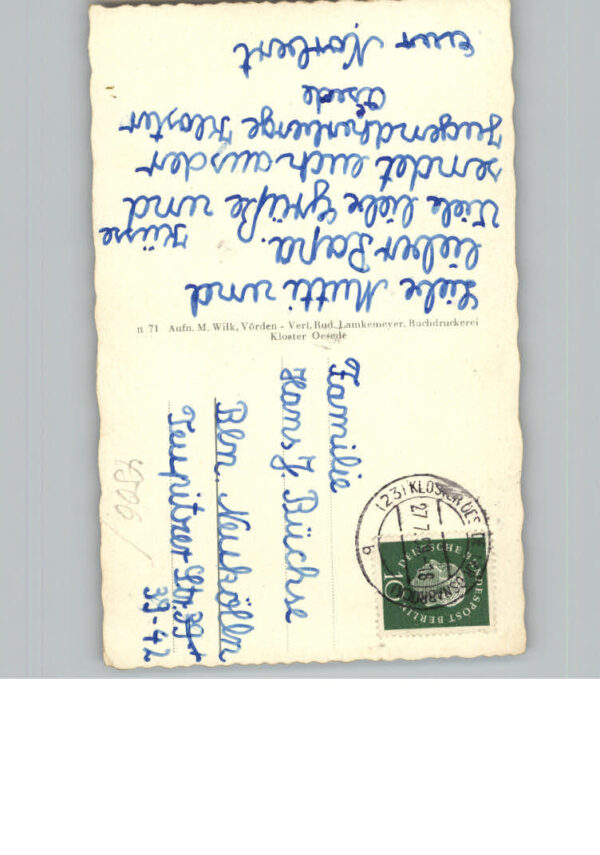 Liebe Mutti und
lieber Papa.
Viele liebe Grüße und Küsse
sendet euch aus der
Jugendherberge Kloster
Ösede
euer Norbert
n 71 Aufn. M. Wilk, Vörden - Verl. Rud. Lamkemeyer, Buchdruckerei
Kloster Oesede
Familie
Hans J. Büchse
Bln. Neukölln
Teupitzer Str. 39
39-42
(23) KLOSTER OESEDE
27.7.
a
10
DEUTSCHE BUNDESPOST BERLIN